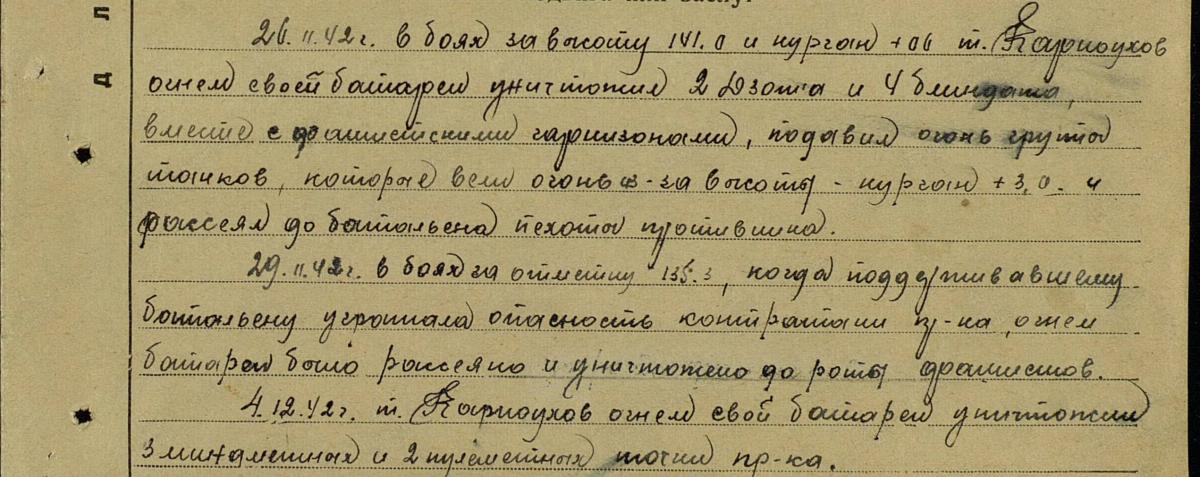 26.11.42г. в боях за высоту 141.0 и курган +0б т. Карноухов
огнем своей батареи уничтожил 2 Дзота и 4 блиндажа,
вместе с фашистскими гарнизонами, подавил огонь группы
танков, которые вели огонь из-за высоты - курган +3,0. и
рассеял до батальена пехоты противника.
29.11.42г. в боях за отметку 135.3, когда поддерживавшему
батальену угрожала опасность контратаки пр-ка, огнем
батареи было рассеяно и уничтожено до роты фашистов.
4.12.42г. т. Карноухов огнем свой батареи уничтожил
3 минометных и 2 пулеметных точки пр-ка.